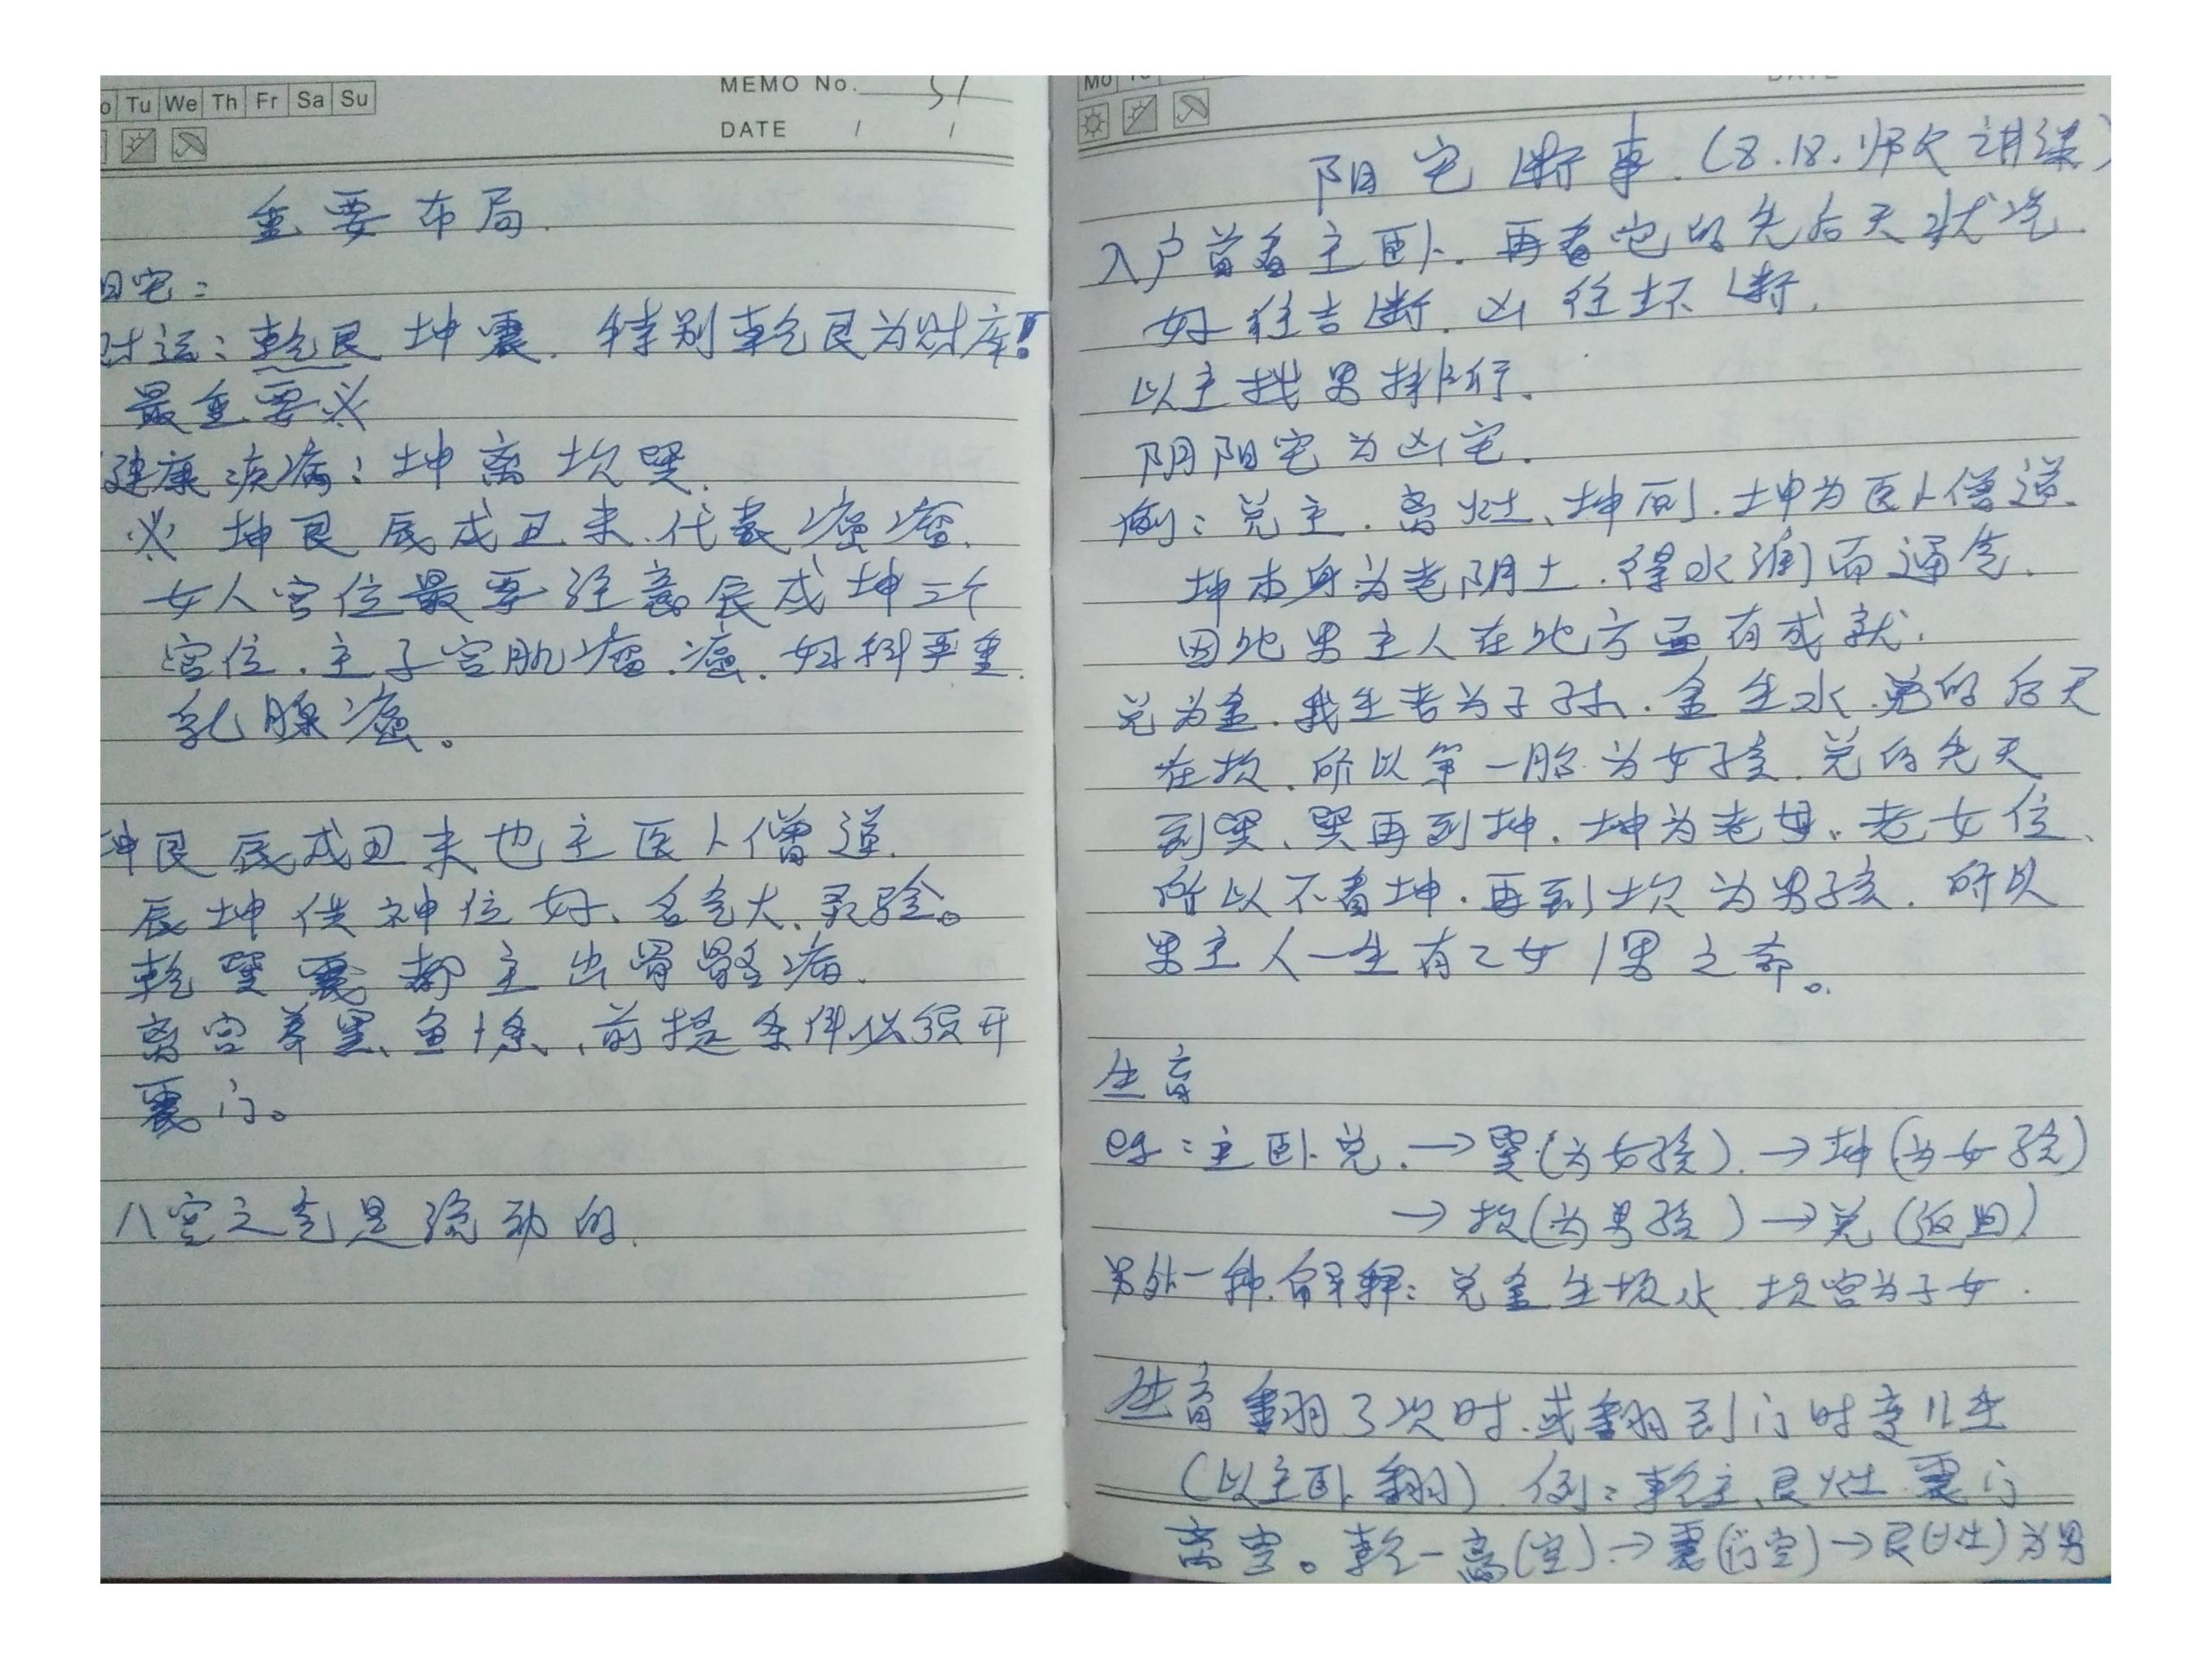 o Tu We Th Fr Sa Su
MEMO No. 51
DATE / /
重要布局.
阳宅:
财运: 乾艮 坤震. 特别乾艮为财库!
最重要※
健康疾病: 坤离坎巽.
※ 坤艮辰戌丑未.代表癌瘤.
女人宫位最要注意辰戌坤三个
宫位.主子宫肌瘤.癌.妇科严重.
乳腺癌。
坤艮辰戌丑未也主医卜僧道.
辰坤供神位好、名气大、灵验。
乾巽震都主出骨骼病.
离宫养黑鱼1条、前提条件必须开
震门。
八宫之气是流动的.
Mo Tu
DATE
阳宅断事.(8.18.师父讲课)
入户首看主卧.再看它的先后天状况.
好往吉断.凶往坏断.
以主找男排行.
阴阳宅为凶宅.
例: 兑主.离灶、坤厕.坤为医卜僧道.
坤本身为老阴土.得水润而通气.
因此男主人在此方面有成就.
兑为金.我生者为子孙.金生水.兑的后天
在坎.所以第一胎为女孩.兑的先天
到巽、巽再到坤.坤为老母.老女位、
所以不看坤.再到坎为男孩.所以
男主人一生有2女1男之命。
生育
eg: 主卧兑.→巽(为女孩).→坤(为女孩)
→坎(为男孩)→兑(返回)
另外一种解释: 兑金生坎水 坎宫为子女.
生育翻3次时.或翻到门时变儿生
(以主卧翻).例: 乾主、艮灶 震门
离空。乾-离(空).→震(门空)→艮(灶)为男